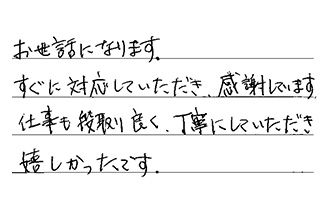 お世話になります。
すぐに対応していただき、感謝しています
仕事も段取り良く、丁寧にしていただき
嬉しかったです。